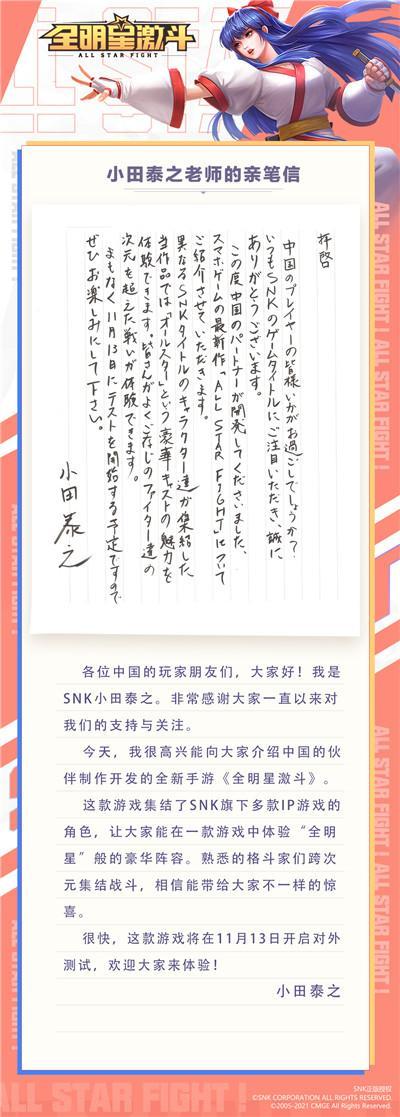 全明星激斗
ALL STAR FIGHT
小田泰之老师的亲笔信
拝啓
中国のプレイヤーの皆様いかがお過ごしでしょうか？
いつもSNKのゲームタイトルにご注目いただき、誠に
ありがとうございます。
この度中国のパートナーが開発してくださいました、
スマホゲームの最新作「ALL STAR FIGHT」について
ご紹介させていただきます。
異なるSNKタイトルのキャラクター達が集結した
当作品では「オールスター」という豪華キャストの魅力を
体験できます。皆さんがよくご存じのファイター達の
次元を超えた戦いが体験できます。
まもなく11月13日にテストを開始する予定ですので
ぜひお楽しみにして下さい。
小田泰之
各位中国的玩家朋友们，大家好！我是
SNK小田泰之。非常感谢大家一直以来对
我们的支持与关注。
今天，我很高兴能向大家介绍中国的伙
伴制作开发的全新手游《全明星激斗》。
这款游戏集结了SNK旗下多款IP游戏的
角色，让大家能在一款游戏中体验“全明
星”般的豪华阵容。熟悉的格斗家们跨次
元集结战斗，相信能带给大家不一样的惊
喜。
很快，这款游戏将在11月13日开启对外
测试，欢迎大家来体验！
小田泰之
ALL STAR FIGHT！
ALL STAR FIGHT！
ALL STAR FIGHT！
SNK正版授权
©SNK CORPORATION ALL RIGHTS RESERVED.
©2005-2021 CMGE All Rights Reserved.